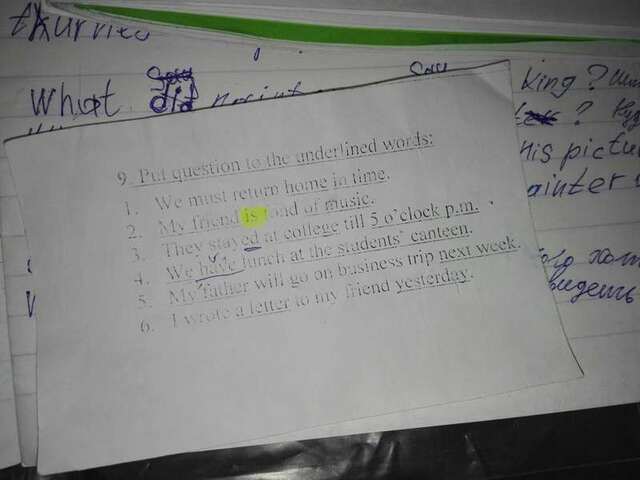 What did
King?
?
his pictu
ainter
9. Put question to the underlined words:
1. We must return home in time.
2. My friend is fond of music.
3. They stayed at college till 5 o'clock p.m.
4. We have lunch at the students' canteen.
5. My father will go on business trip next week.
6. I wrote a letter to my friend yesterday.